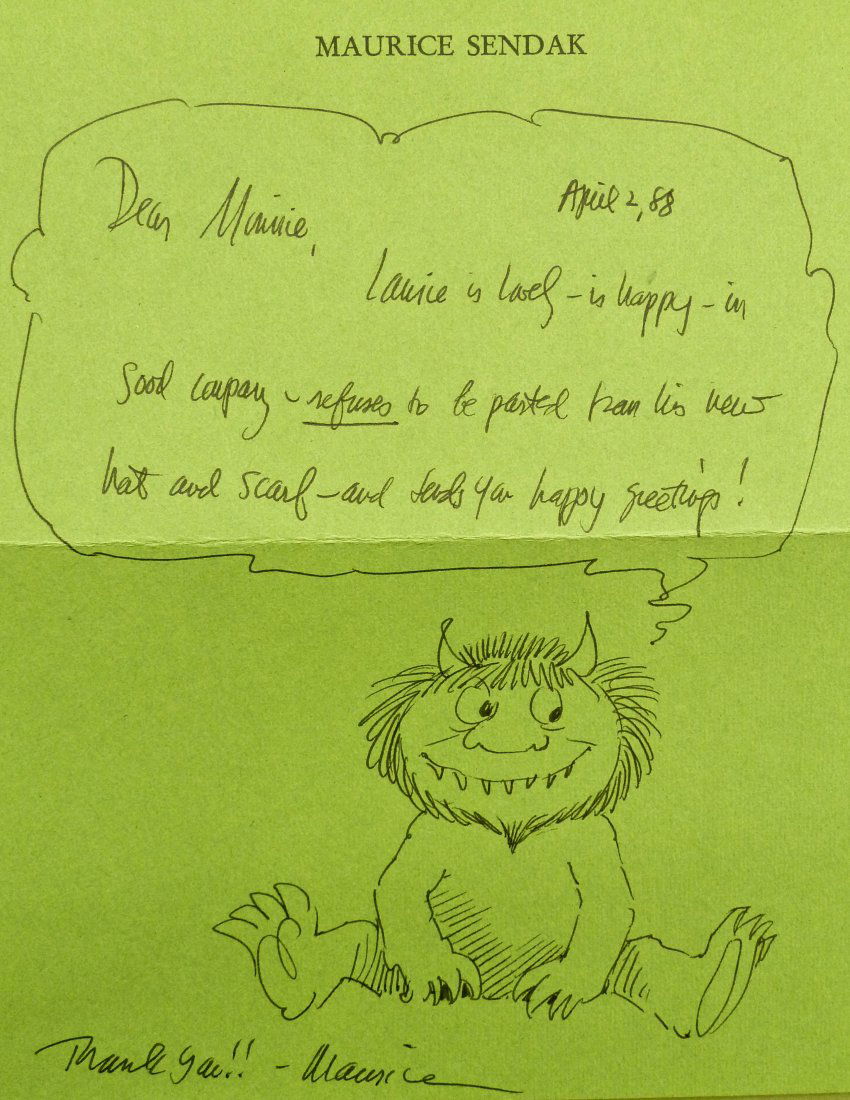 MAURICE SENDAK
April 2, 88
Dear Minnie,
is lovely – is happy – in
good company – refuses to be parted from his new
hat and scarf – and sends you happy greetings!
Thank you!! – Maurice